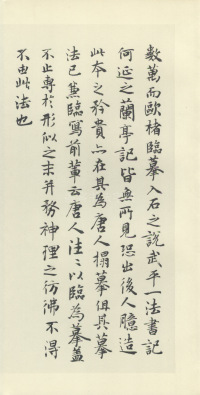 數萬而歐褚臨摹入石之說武平一法書記
何延之蘭亭記皆無所見恐出後人臆造
此本之矜貴亦在其為唐人搨摹但其摹
法已兼臨寫前輩云唐人注〻以臨為摹蓋
不止專於形似之末并務神理之彷彿不得
不由此法也